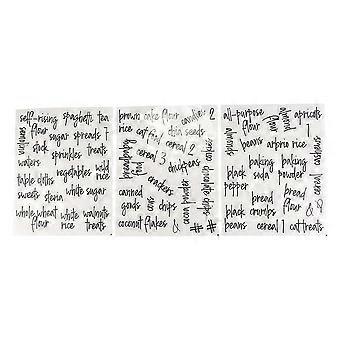 self-rising spaghetti tea
flour
sugar spreads 7
stock
sprinkles treats
waters
vegetables wild
table cloths rice
sweets stevia white sugar
whole wheat white walnuts
flour rice treats
brown cake flour candies 2
rice cat food chia seeds
cereal 2
cereal 3
chickpeas
cookies
crackers
canned
goods
cocoa powder
chips
coconut flakes &
#
#
all-purpose
flour
almond
flour
apricots
1
beans arborio rice
cashews
baking baking
black soda powder
pepper
cereal
bread bread
black crumbs flour &
beans cereal 1 cat treats